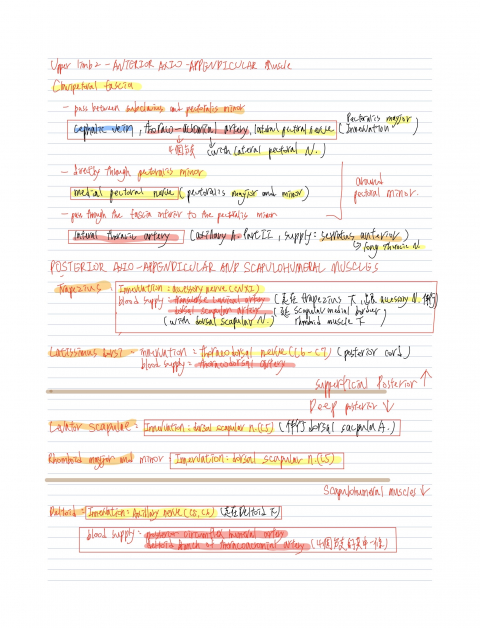 Upper limb 2 - ANTERIOR AXIO - APPENDICULAR Muscle
Clavipectoral fascia
- pass between subclavius and pectoralis minor
cephalic vein, thoraco-acromial artery, lateral pectoral nerve (Pectoralis major innervation)
4個分支 (with lateral pectoral N.)
- directly through pectoralis minor
medial pectoral nerve (pectoralis major and minor)
around pectoral minor.
- pass though the fascia inferior to the pectoralis minor
lateral thoracic artery (axillary A. Part II, supply: serratus anterior)
long thoracic N
POSTERIOR AXIO - APPENDICULAR AND SCAPULOHUMERAL MUSCLES
Trapezius: Innervation: accessory nerve (CNXI)
blood supply: transverse cervical artery (走在 trapezius 下, accessory N. 伴行)
dorsal scapular artery (延 scapular medial border,
(with dorsal scapular N.) rhomboid muscle 下
Latissimus dorsi - innervation = thoracodorsal nerve (C6-C7) (posterior cord)
blood supply = thoracodorsal artery
Supperficial Posterior ↑
Deep posterior ↓
Levator scapulae = Innervation: dorsal scapular n.(C5) (伴行 dorsal scapular A.)
Rhomboid major and minor Innervation: dorsal scapular n.(C5)
Scapulohumeral muscles ↓
Deltoid = Innervation: Axillary nerve (C5, C6) (走在Deltoid 下)
blood supply: posterior circumflex humeral artery
deltoid branch of thoracoacromial artery (4個分支的其中一條)